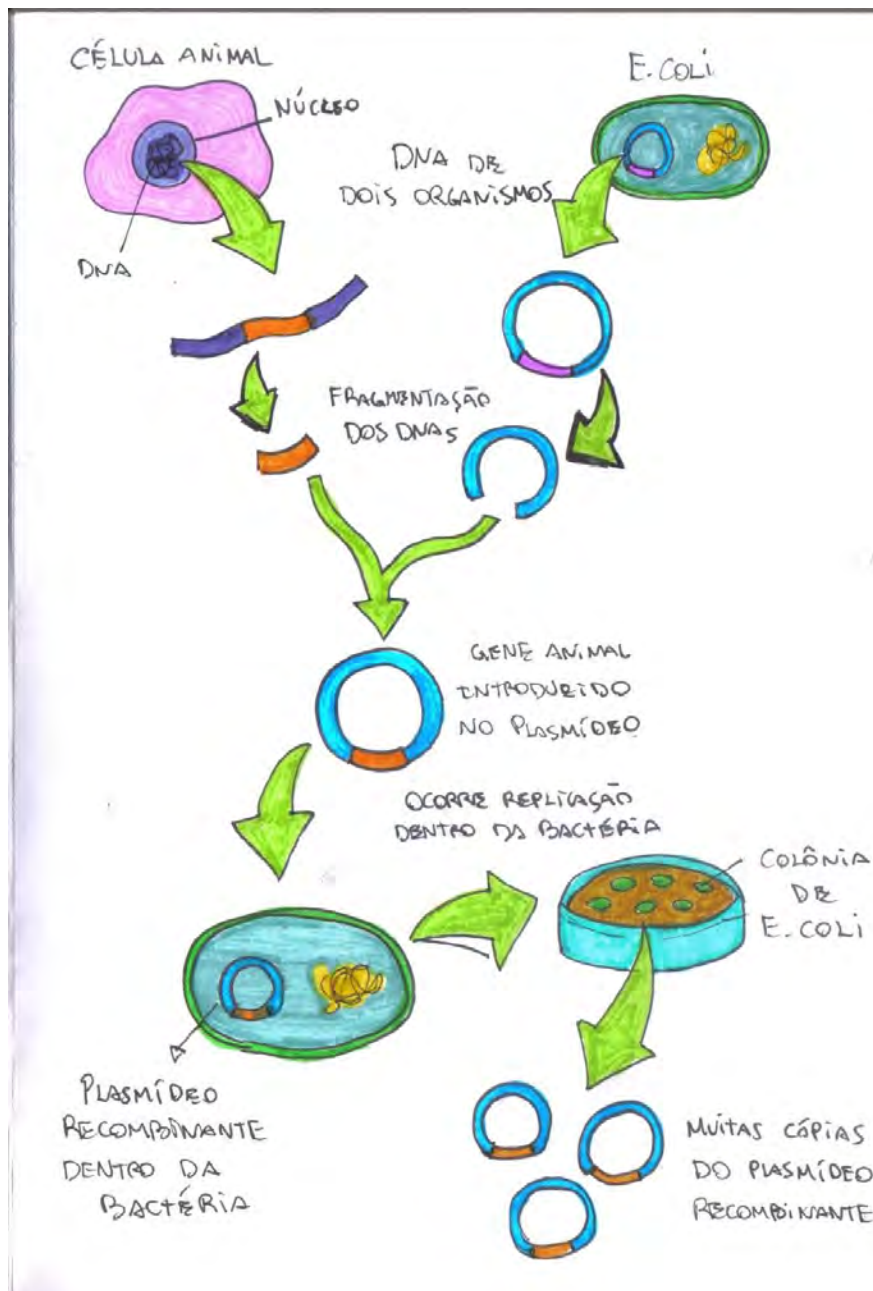 CÉLULA ANIMAL
NÚCLEO
DNA
E. COLI
DNA DE
DOIS ORGANISMOS
FRAGMENTAÇÃO
DOS DNAS
GENE ANIMAL
INTRODUZIDO
NO PLASMÍDEO
OCORRE REPLICAÇÃO
DENTRO DA BACTÉRIA
COLÔNIA
DE
E. COLI
PLASMÍDEO
RECOMBINANTE
DENTRO DA
BACTÉRIA
MUITAS CÓPIAS
DO PLASMÍDEO
RECOMBINANTE